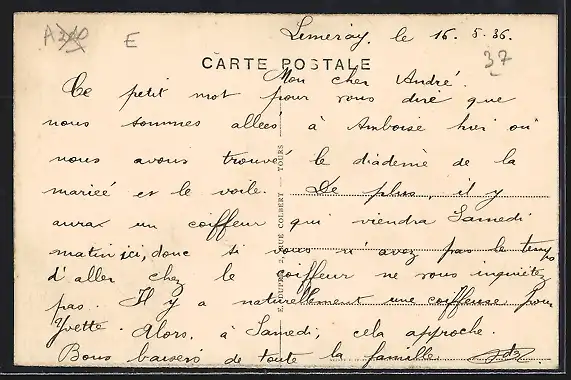 A200 E
Limeray, le 16.5.36.
37
CARTE POSTALE
Mon cher André.
Ce petit mot pour vous dire que
nous sommes allées à Amboise hier où
nous avons trouvé le diadème de la
mariée et le voile. De plus, il y
aura un coiffeur qui viendra Samedi
matin ici, donc si vous n'avez pas le temps
d'aller chez le coiffeur ne vous inquiétez
pas. Il y a naturellement une coiffeuse pour
Yvette. Alors, à Samedi, cela approche.
Bons baisers de toute la famille.
2, RUE COLBERT — TOURS